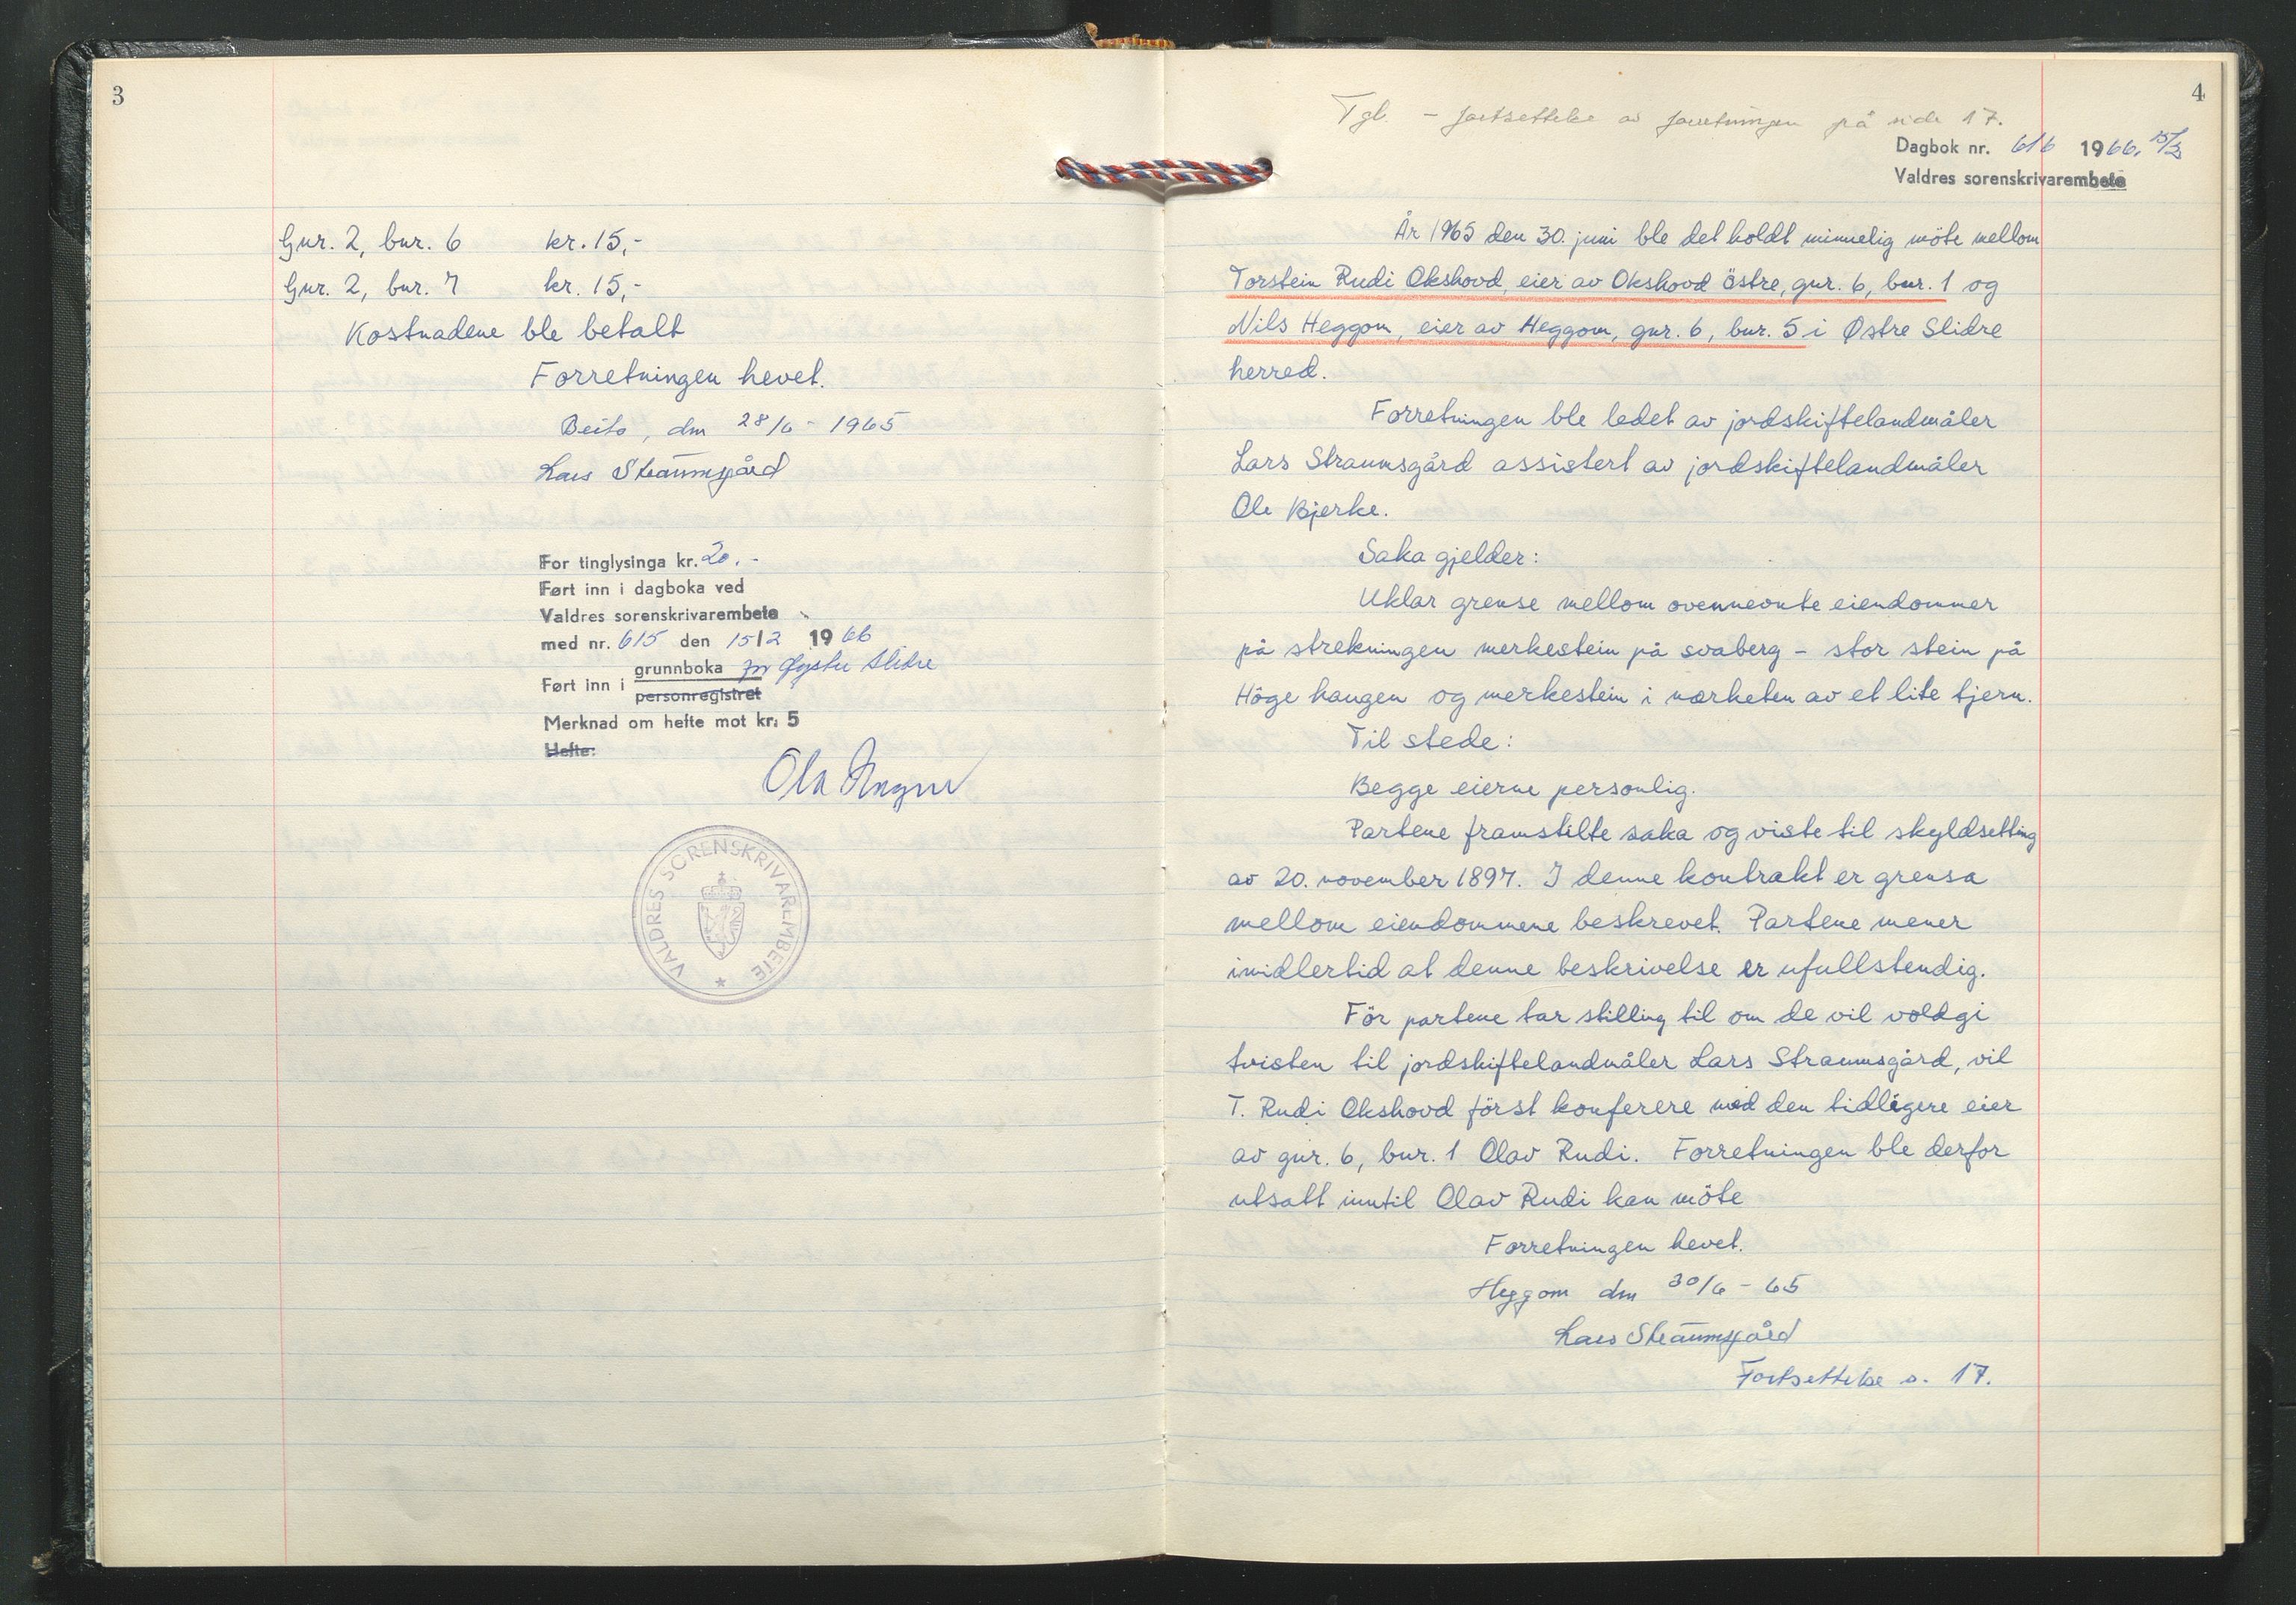 3
Gnr. 2, bnr. 6 kr. 15,-
Gnr. 2, bnr. 7 kr. 15,-
Kostnadene ble betalt
Forretningen hevet.
Beito, den 28/6 - 1965
Lars Straumsgård
For tinglysinga kr. 20.-
Ført inn i dagboka ved
Valdres sorenskrivarembete
med nr. 615 den 15/2 1966
grunnboka for Øystre Slidre
Ført inn i
personregistret
Merknad om hefte mot kr. 5
Hefte:
VALDRES SORENSKRIVAREMBETE
4
Tgl. - fortsettelse av forretningen på side 17.
Dagbok nr. 616 1966, 15/2
Valdres sorenskrivarembete
År 1965 den 30. juni ble det holdt minnelig möte mellom
Torstein Rudi Okshovd, eier av Okshovd östre, gnr. 6, bnr. 1 og
Nils Heggom, eier av Heggom, gnr. 6, bnr. 5 i Østre Slidre
herred.
Forretningen ble ledet av jordskiftelandmåler
Lars Straumsgård assistert av jordskiftelandmåler
Ole Bjerke.
Saka gjelder:
Uklar grense mellom ovennevnte eiendommer
på strekningen merkestein på svaberg - stor stein på
Höge haugen og merkestein i nærheten av et lite tjern.
Til stede:
Begge eierne personlig.
Partene framstilte saka og viste til skyldsetting
av 20. november 1897. I denne kontrakt er grensa
mellom eiendommene beskrevet. Partene mener
imidlertid at denne beskrivelse er ufullstendig.
För partene tar stilling til om de vil voldgi
tvisten til jordskiftelandmåler Lars Straumsgård, vil
T. Rudi Okshovd först konferere med den tidligere eier
av gnr. 6, bnr. 1 Olav Rudi. Forretningen ble derfor
utsatt inntil Olav Rudi kan möte
Forretningen hevet.
Heggom den 30/6 - 65
Lars Straumsgård
Fortsettelse s. 17.